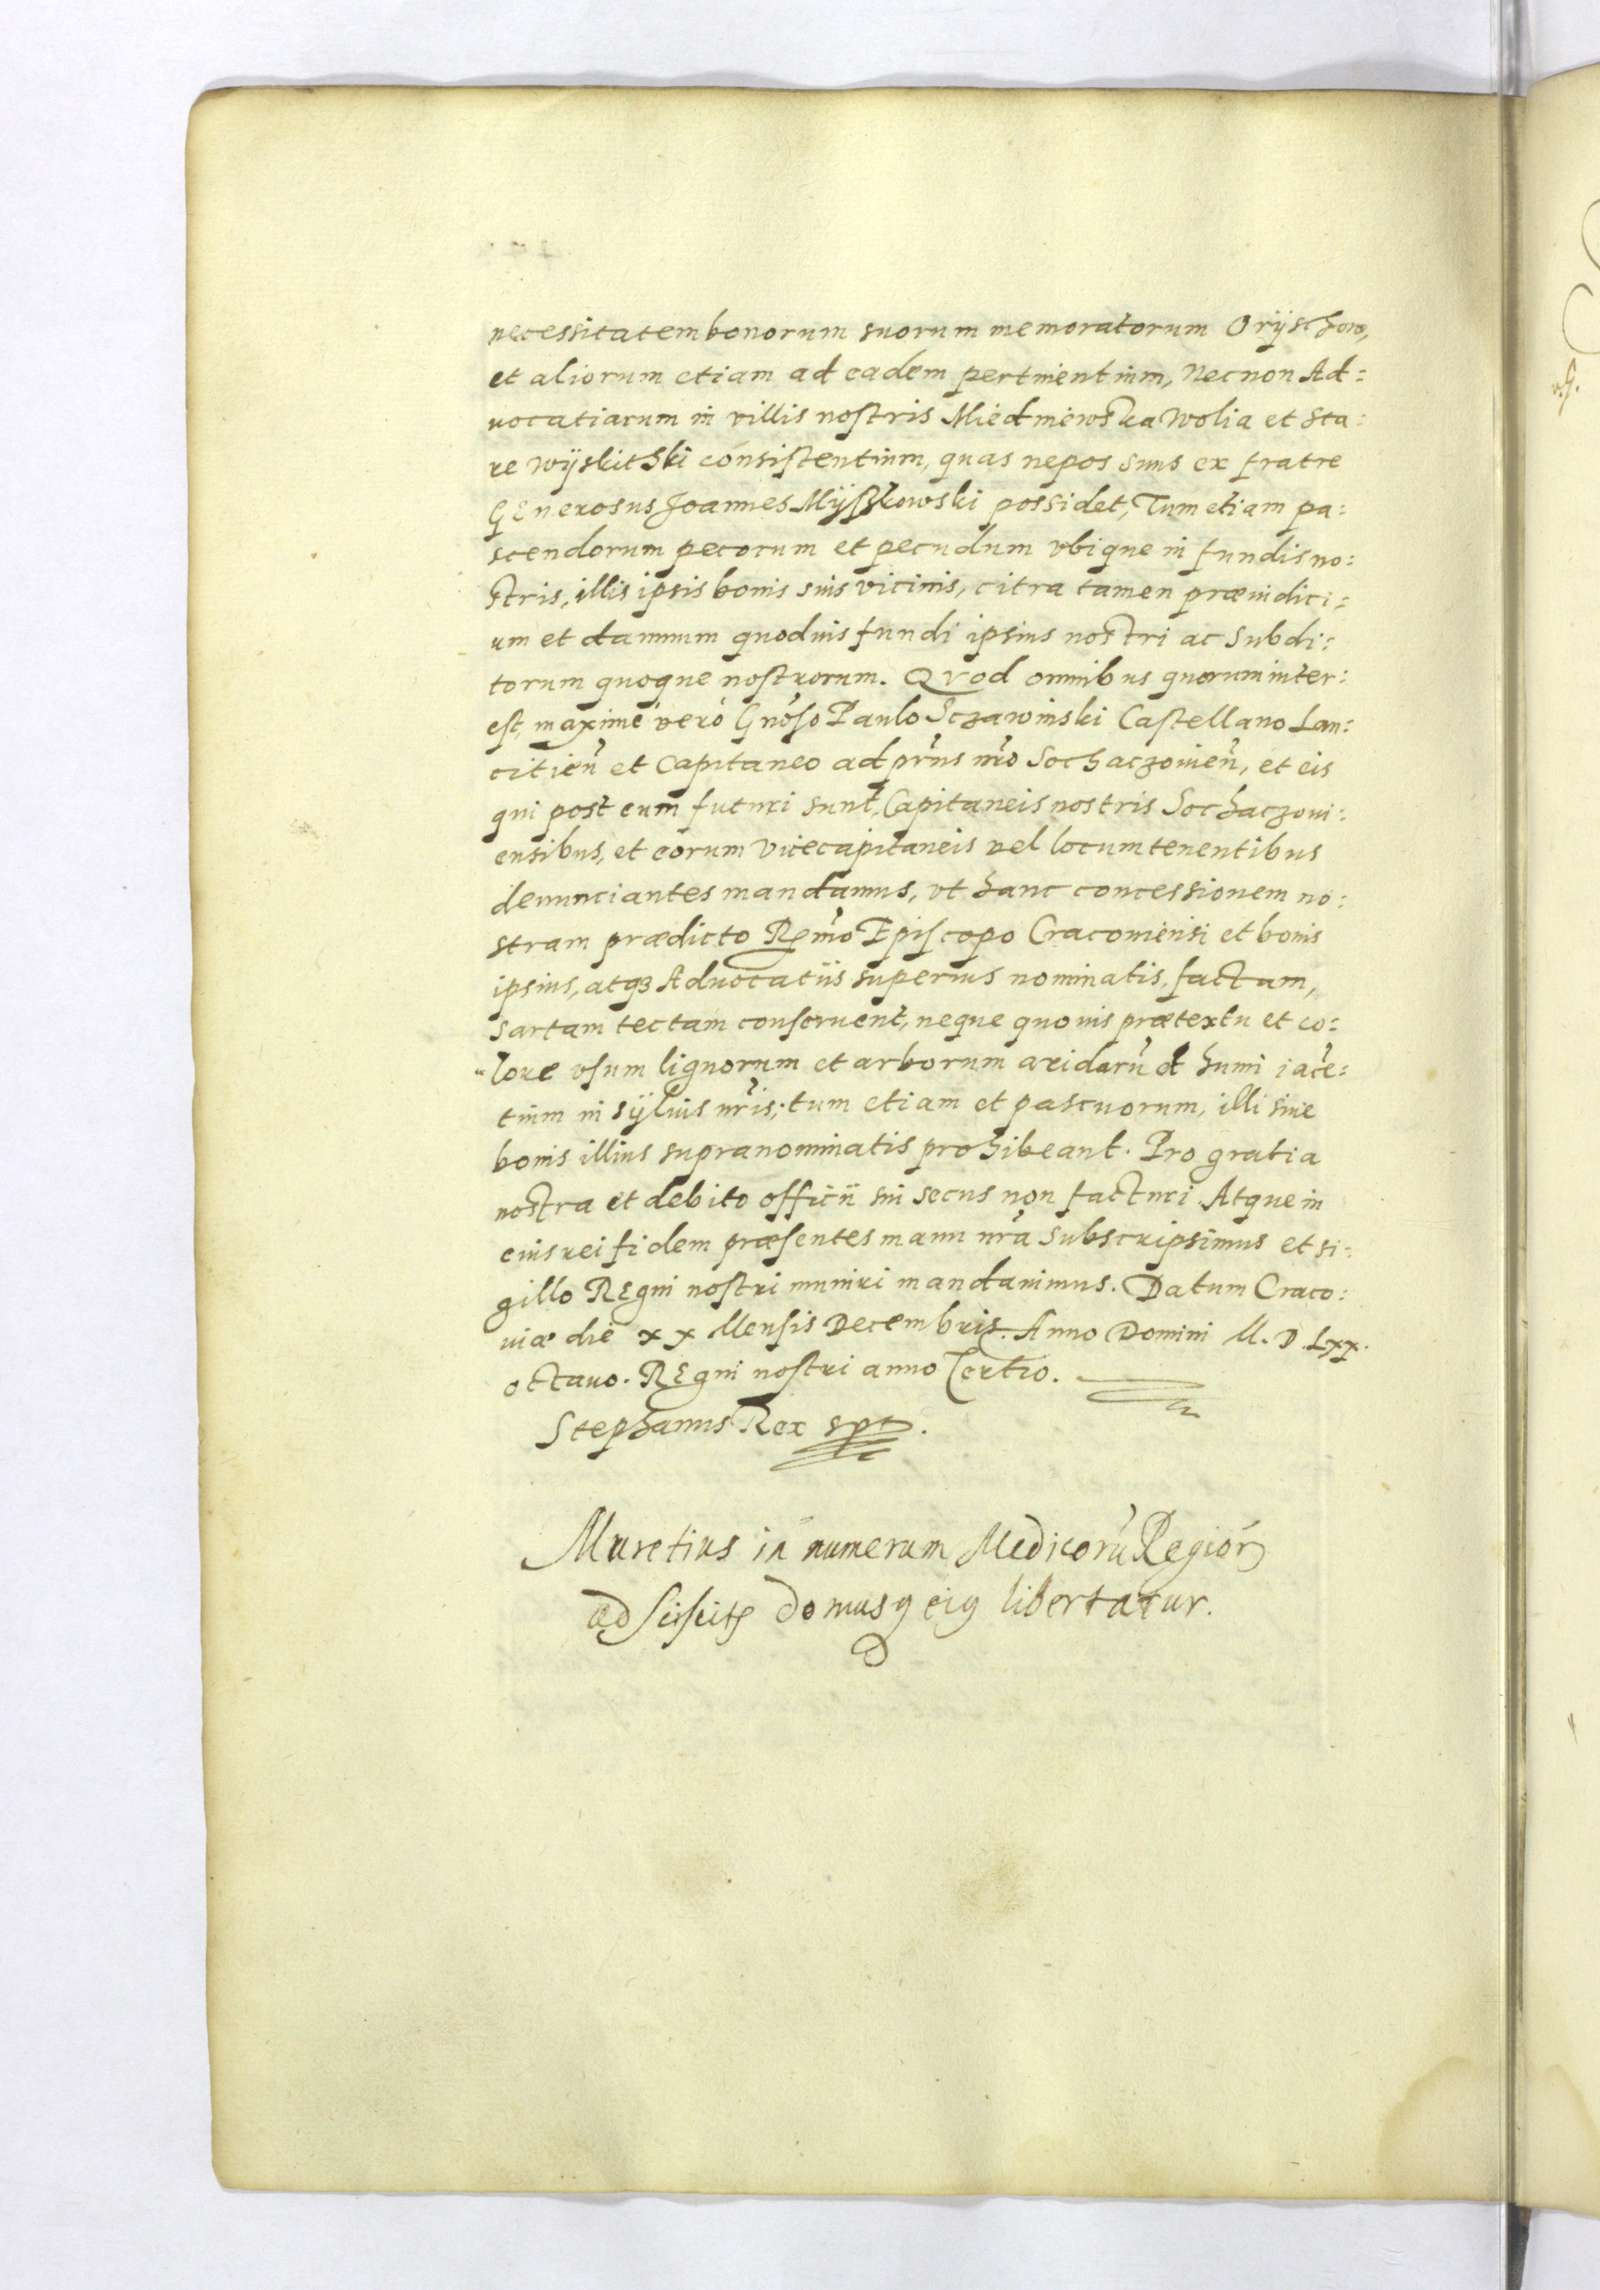 necessitatem bonorum suorum memoratorum Orÿschow,
et aliorum etiam ad eadem pertinentium, Necnon Ad=
uocatiarum in villis nostris Miedniewska Wolia et Sta=
re Wÿskithki consistentium, quas nepos suus ex fratre
Generosus Joannes Mÿszkowski possidet, Tum etiam pa=
scendorum pecorum et pecudum vbique in fundis no=
stris, illis ipsis bonis suis vicinis, citra tamen præiudici=
um et damnum quoduis fundi ipsius nostri ac Subdi=
torum quoque nostrorum. Quod omnibus quorum inter=
est, maximè verò Gnõso Paulo Sczawinski Castellano Lan=
citień et Capitaneo ad prñs nrõ Sochaczouień, et eis
qui post eum futuri sunt, Capitaneis nostris Sochaczoui=
ensibus, et eorum Vicecapitaneis vel locumtenentibus
denunciantes mandamus, vt hanc concessionem no=
stram prædicto Rẽmo Episcopo Cracouiensi et bonis
ipsius, atq3 Aduocatiis superius nominatis, factam,
sartam tectam conseruent, neque quouis prætextu et co=
lore vsum lignorum et arborum aridarũ et humi iacẽ=
tium in sÿluis nrĩs; tum etiam et pascuorum, illi siue
bonis illius supranominatis prohibeant. Pro gratia
nostra et debito officii sui secus non facturi. Atque in
eius rei fidem præsentes manu nrã subscripsimus et si=
gillo Regni nostri muniri mandauimus. Datum Craco=
uiæ die xx Mensis Decembris. Anno Domini M. D. Lxx.
octauo. Regni nostri anno Tertio.
Stephanus Rex sst.
Muretius in numerum Medicorũ Regiorꝫ
adsciscitꝭ domusqꝫ eiꝯ libertatur.